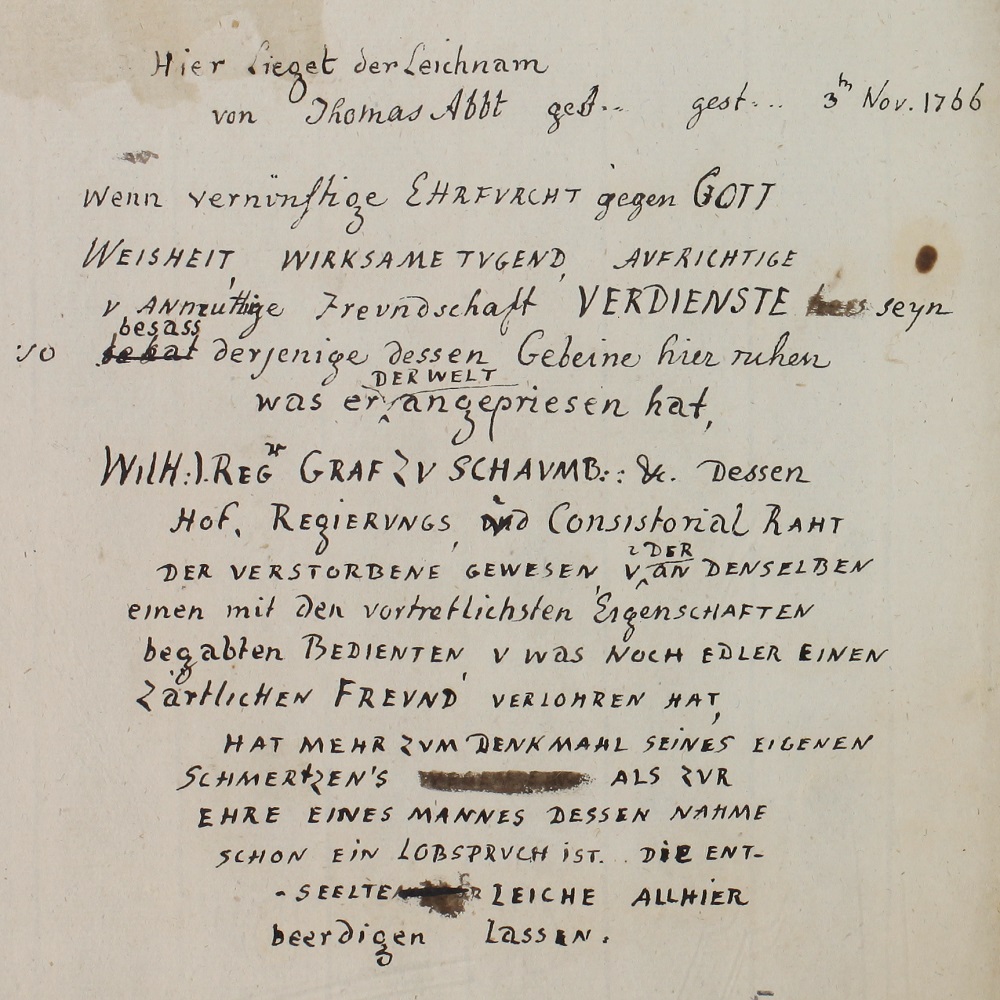 Hier Lieget der Leichnam
von Thomas Abbt geb... gest... 3tn Nov. 1766
Wenn vernünftige EHRFVRCHT gegen GOTT
WEISHEIT, WIRKSAME TVGEND, AVFRICHTIGE
V ANmuthige Freundschaft VERDIENSTE seyn
besass
so derjenige dessen Gebeine hier ruhen
DER WELT
was er angepriesen hat,
WilH: I. REG GRAF ZV SCHAVMB:: &. Dessen
HOF, REGIERVNGS, und Consistorial RAHT
DER
DER VERSTORBENE GEWESEN, V an DENSELBEN
einen mit den vortreflichsten EigenSCHAFTEN
begabten BEDIENTEN V was NOCH EDLER EINEN
ZärtlicHEN FREVND VERLOHREN HAT,
HAT MEHR ZVM DENKMAHL SEINES EIGENEN
SCHMERTZEN'S ALS ZVR
EHRE EINES MANNES DESSEN NAHME
SCHON EIN LOBSPRVCH iST. DIE ENT-
- SEELTE LEICHE ALLHIER
beerdigen LassEN.